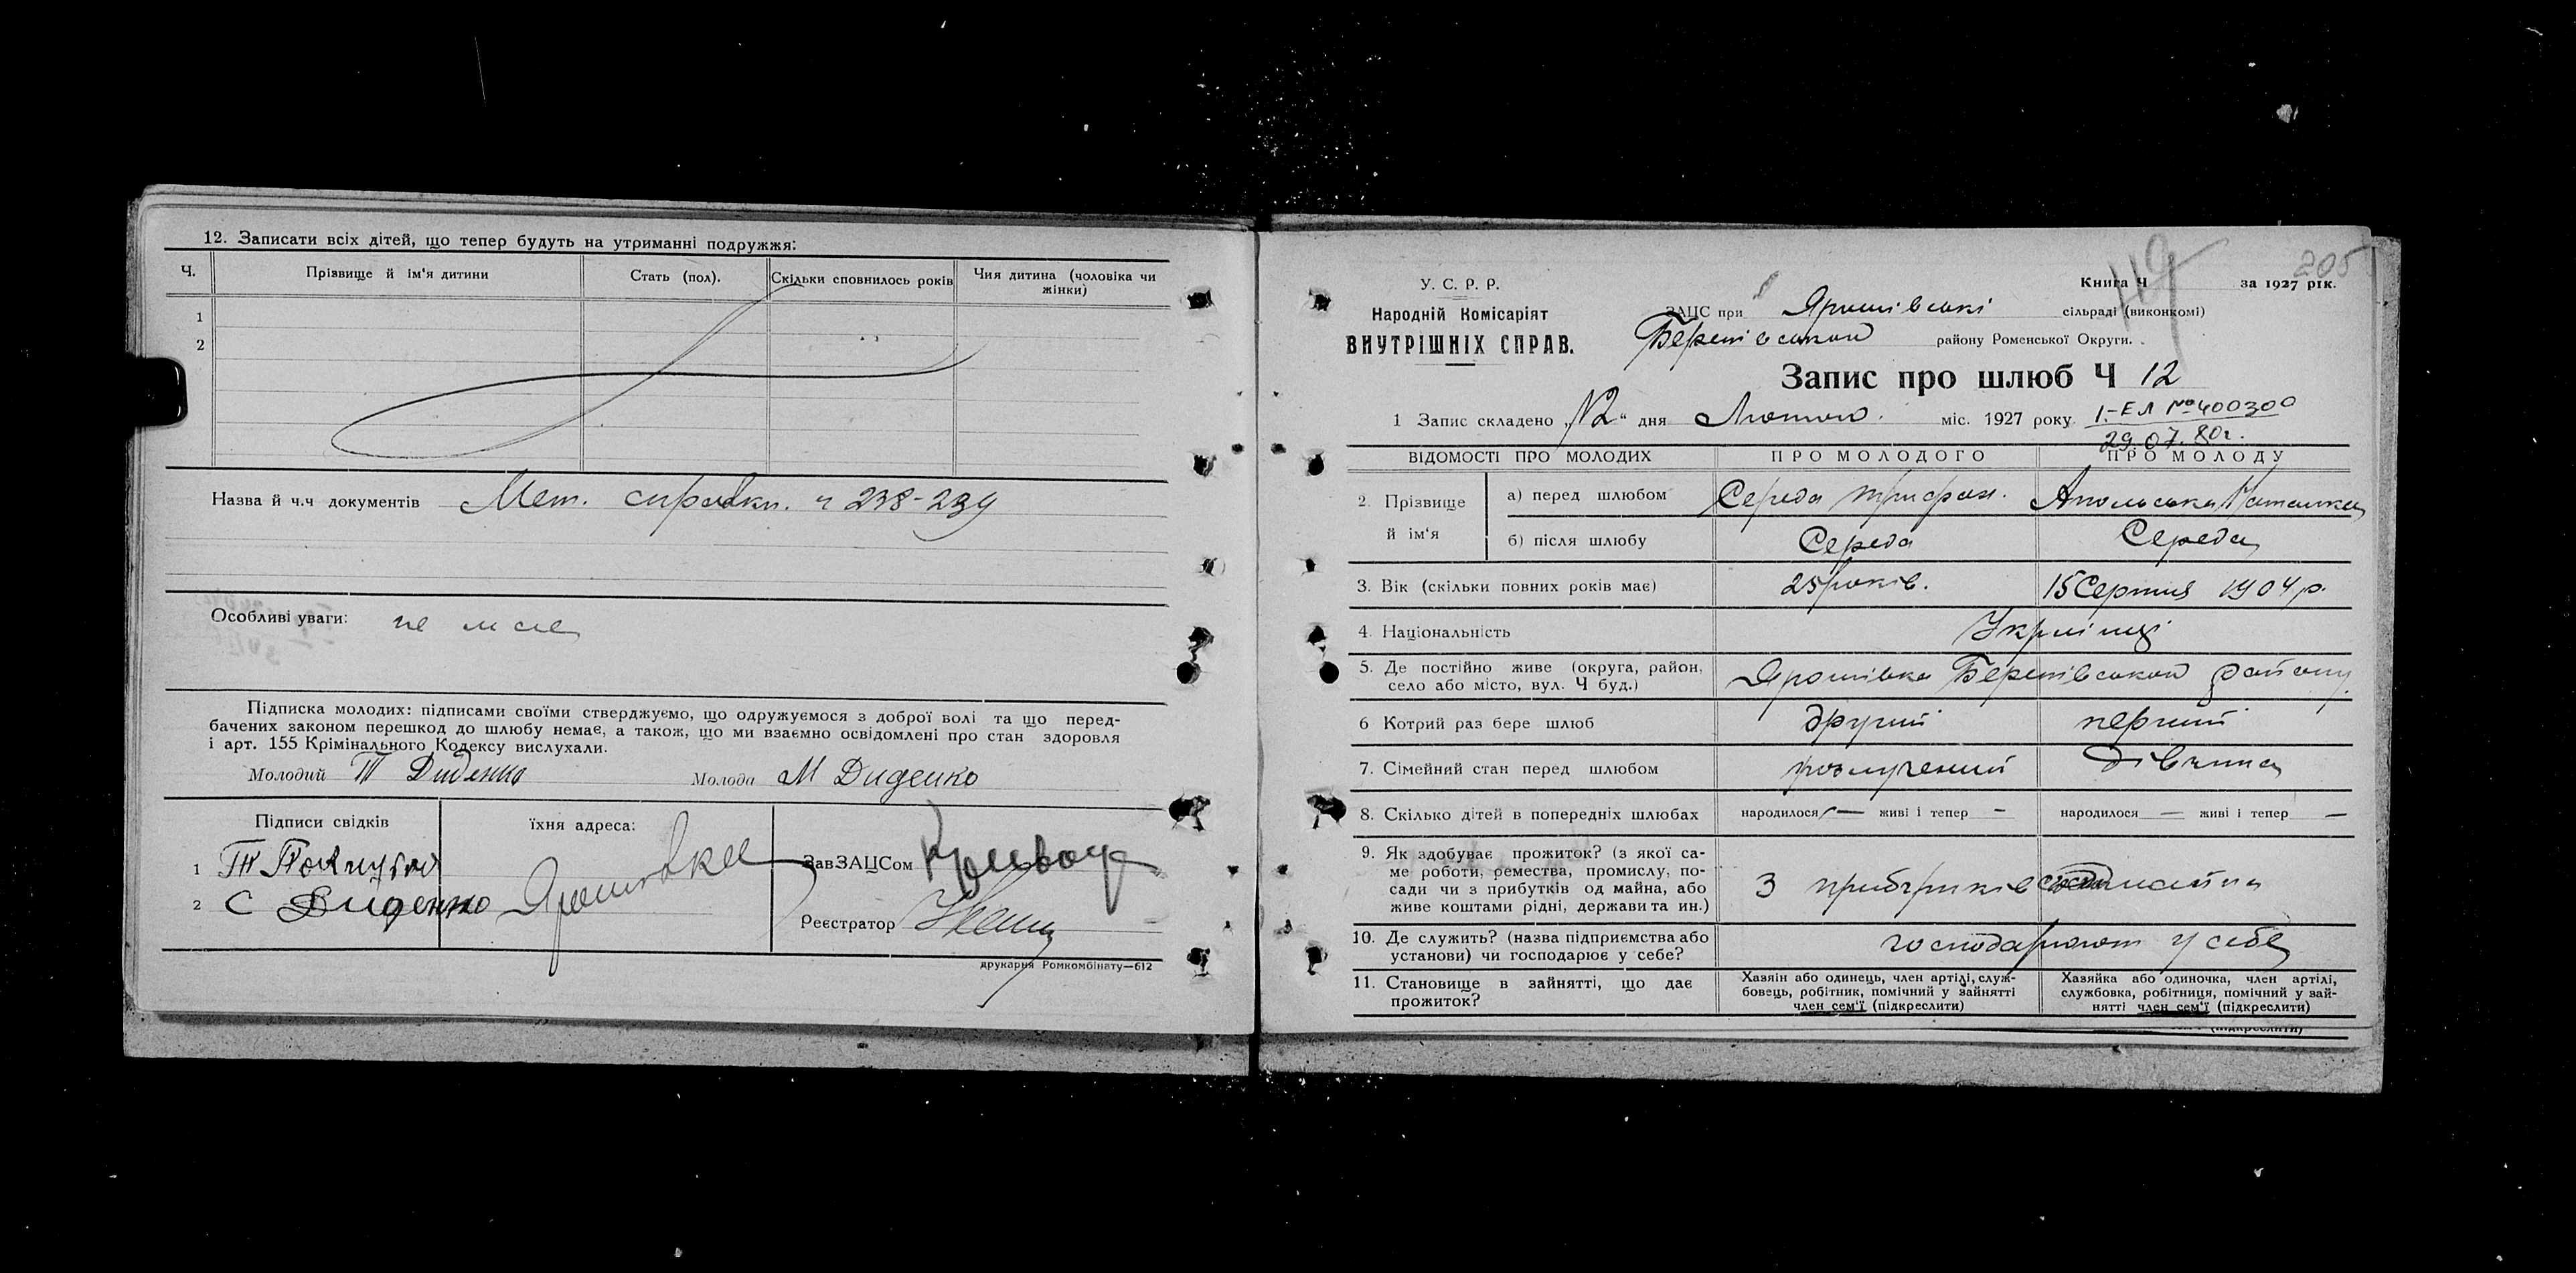 12. Записати всіх дітей, що тепер будуть на утриманні подружжя:
Ч. Прізвище й ім'я дитини Стать (пол). Скільки сповнилось років Чия дитина (чоловіка чи жінки)
1
2
Назва й ч.ч документів Мет. справки. ч 238-239
Особливі уваги: не має
Підписка молодих: підписами своїми стверджуємо, що одружуємося з доброї волі та що перед-
бачених законом перешкод до шлюбу немає, а також, що ми взаємно освідомлені про стан здоровля
і арт. 155 Крімінального Кодексу вислухали.
Молодий Т Диденко Молода М Диденко
Підписи свідків їхня адреса:
1 Т
2 С Диденко Ярошівка
ЗавЗАЦСом
Реєстратор
друкарня Ромкомбінату—612
205
У. С. Р. Р.
Народній Комісаріят
ВНУТРІШНІХ СПРАВ.
Книга Ч за 1927 рік.
ЗАЦС при Ярошівські сільраді (виконкомі)
району Роменської Округи.
Запис про шлюб Ч 12
1 Запис складено „12" дня Лютого міс. 1927 року.
I-ЕЛ № 400300
29.07.80г.
ВІДОМОСТІ ПРО МОЛОДИХ ПРО МОЛОДОГО ПРО МОЛОДУ
2. Прізвище й ім'я а) перед шлюбом Середа Трифон. Наталка
б) після шлюбу Середа Середа
3. Вік (скільки повних років має) 25 років. 15 Серпня 1904 р.
4. Національність Українці
5. Де постійно живе (округа, район,
село або місто, вул. Ч буд.) Ярошівка району
6 Котрий раз бере шлюб другий перший
7. Сімейний стан перед шлюбом розлучений дівчина
8. Скілько дітей в попередніх шлюбах народилося — живі і тепер - народилося — живі і тепер —
9. Як здобуває прожиток? (з якої са-
ме роботи, ремества, промислу, по-
сади чи з прибутків од майна, або
живе коштами рідні, держави та ин.) З прибутків
10. Де служить? (назва підприємства або
установи) чи господарює у себе? господарюют у себе
11. Становище в зайнятті, що дає
прожиток?
Хазяїн або одинець, член артілі, служ-
бовець, робітник, помічний у зайнятті
член сем'ї (підкреслити)
Хазяйка або одиночка, член артілі,
службовка, робітниця, помічний у зай-
нятті член сем'ї (підкреслити)
(підкреслити)